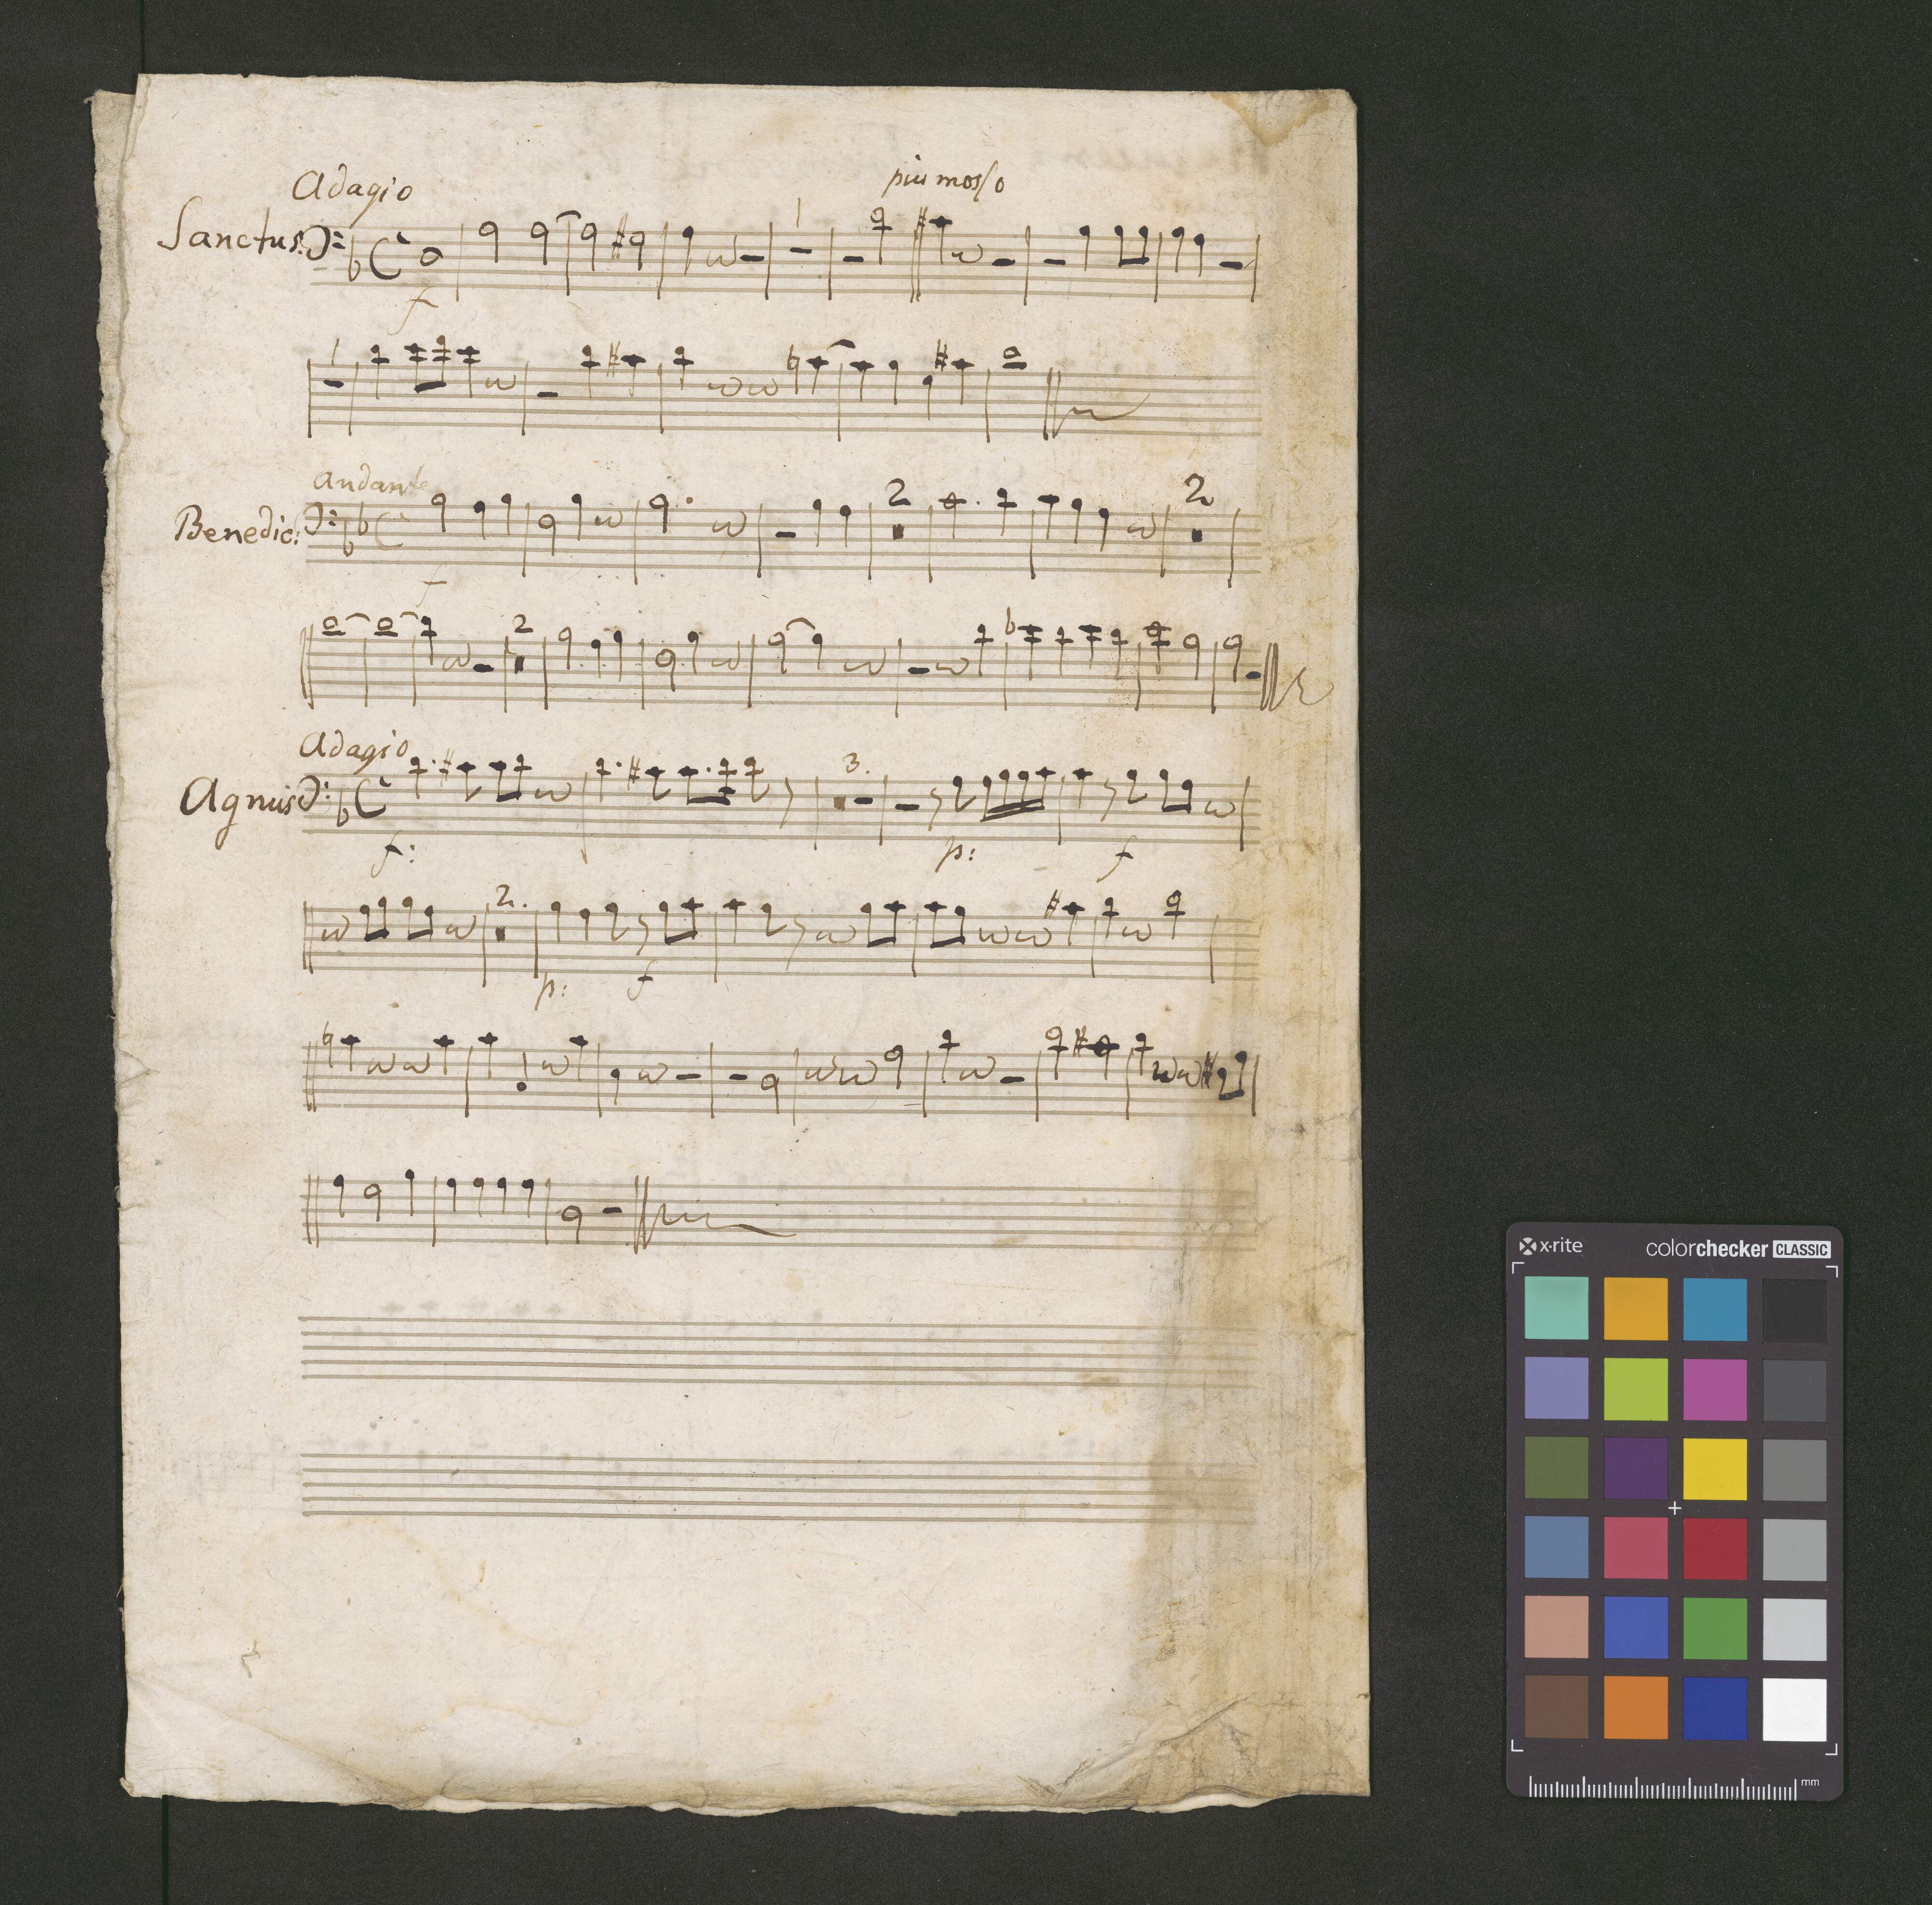 Adagio
più mosso
Sanctus.
f
1
1
Andante
Benedic:
2
2
f
2
Adagio
Agnus
3.
f:
p:
f
2.
p:
f
x-rite
colorchecker CLASSIC
mm